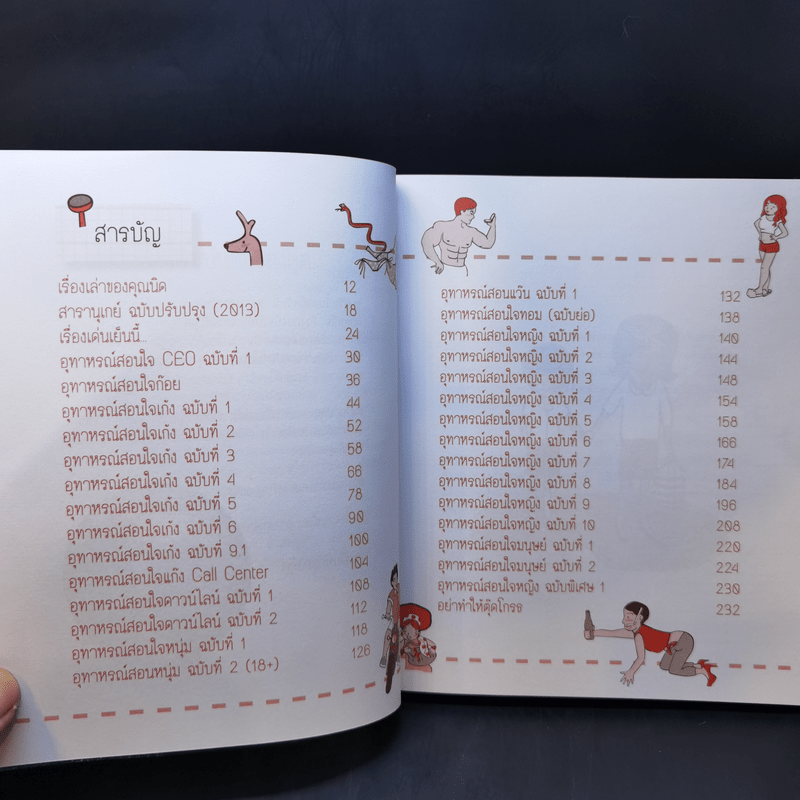 สารบัญ
เรื่องเล่าของคุณนิด 12
สารานุเกย์ ฉบับปรับปรุง (2013) 18
เรื่องเด่นเย็นนี้... 24
อุทาหรณ์สอนใจ CEO ฉบับที่ 1 30
อุทาหรณ์สอนใจก๊อย 36
อุทาหรณ์สอนใจเก้ง ฉบับที่ 1 44
อุทาหรณ์สอนใจเก้ง ฉบับที่ 2 52
อุทาหรณ์สอนใจเก้ง ฉบับที่ 3 58
อุทาหรณ์สอนใจเก้ง ฉบับที่ 4 66
อุทาหรณ์สอนใจเก้ง ฉบับที่ 5 78
อุทาหรณ์สอนใจเก้ง ฉบับที่ 6 90
อุทาหรณ์สอนใจเก้ง ฉบับที่ 9.1 100
อุทาหรณ์สอนใจแก๊ง Call Center 104
อุทาหรณ์สอนใจดาวน์ไลน์ ฉบับที่ 1 108
อุทาหรณ์สอนใจดาวน์ไลน์ ฉบับที่ 2 112
อุทาหรณ์สอนใจหนุ่ม ฉบับที่ 1 118
อุทาหรณ์สอนหนุ่ม ฉบับที่ 2 (18+) 126
อุทาหรณ์สอนแว๊น ฉบับที่ 1 132
อุทาหรณ์สอนใจทอม (ฉบับย่อ) 138
อุทาหรณ์สอนใจหญิง ฉบับที่ 1 140
อุทาหรณ์สอนใจหญิง ฉบับที่ 2 144
อุทาหรณ์สอนใจหญิง ฉบับที่ 3 148
อุทาหรณ์สอนใจหญิง ฉบับที่ 4 154
อุทาหรณ์สอนใจหญิง ฉบับที่ 5 158
อุทาหรณ์สอนใจหญิง ฉบับที่ 6 166
อุทาหรณ์สอนใจหญิง ฉบับที่ 7 174
อุทาหรณ์สอนใจหญิง ฉบับที่ 8 184
อุทาหรณ์สอนใจหญิง ฉบับที่ 9 196
อุทาหรณ์สอนใจหญิง ฉบับที่ 10 208
อุทาหรณ์สอนใจมนุษย์ ฉบับที่ 1 220
อุทาหรณ์สอนใจมนุษย์ ฉบับที่ 2 224
อุทาหรณ์สอนใจหญิง ฉบับพิเศษ 1 230
อย่าทำให้ตุ๊ดโกรธ 232